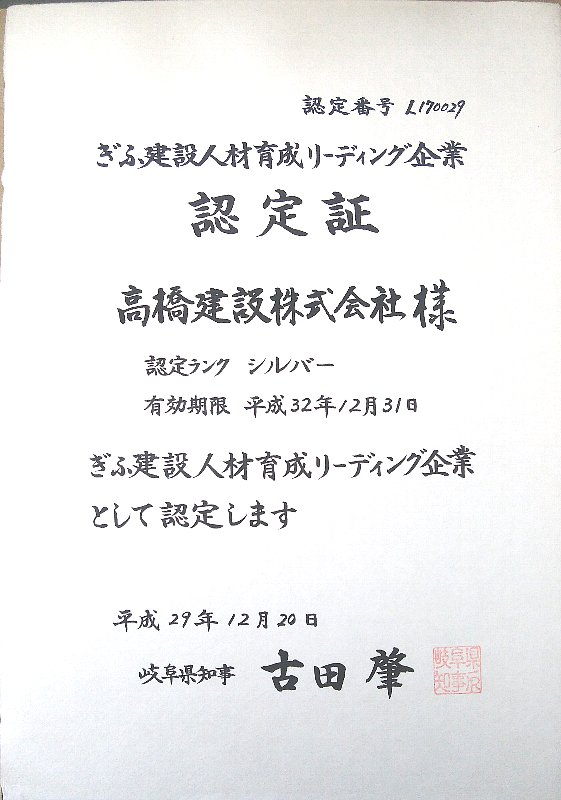 認定番号 L170029
ぎふ建設人材育成リーディング企業
認定証
高橋建設株式会社様
認定ランク シルバー
有効期限 平成32年12月31日
ぎふ建設人材育成リーディング企業
として認定します
平成29年12月20日
岐阜県知事 古田肇
岐阜県知事印